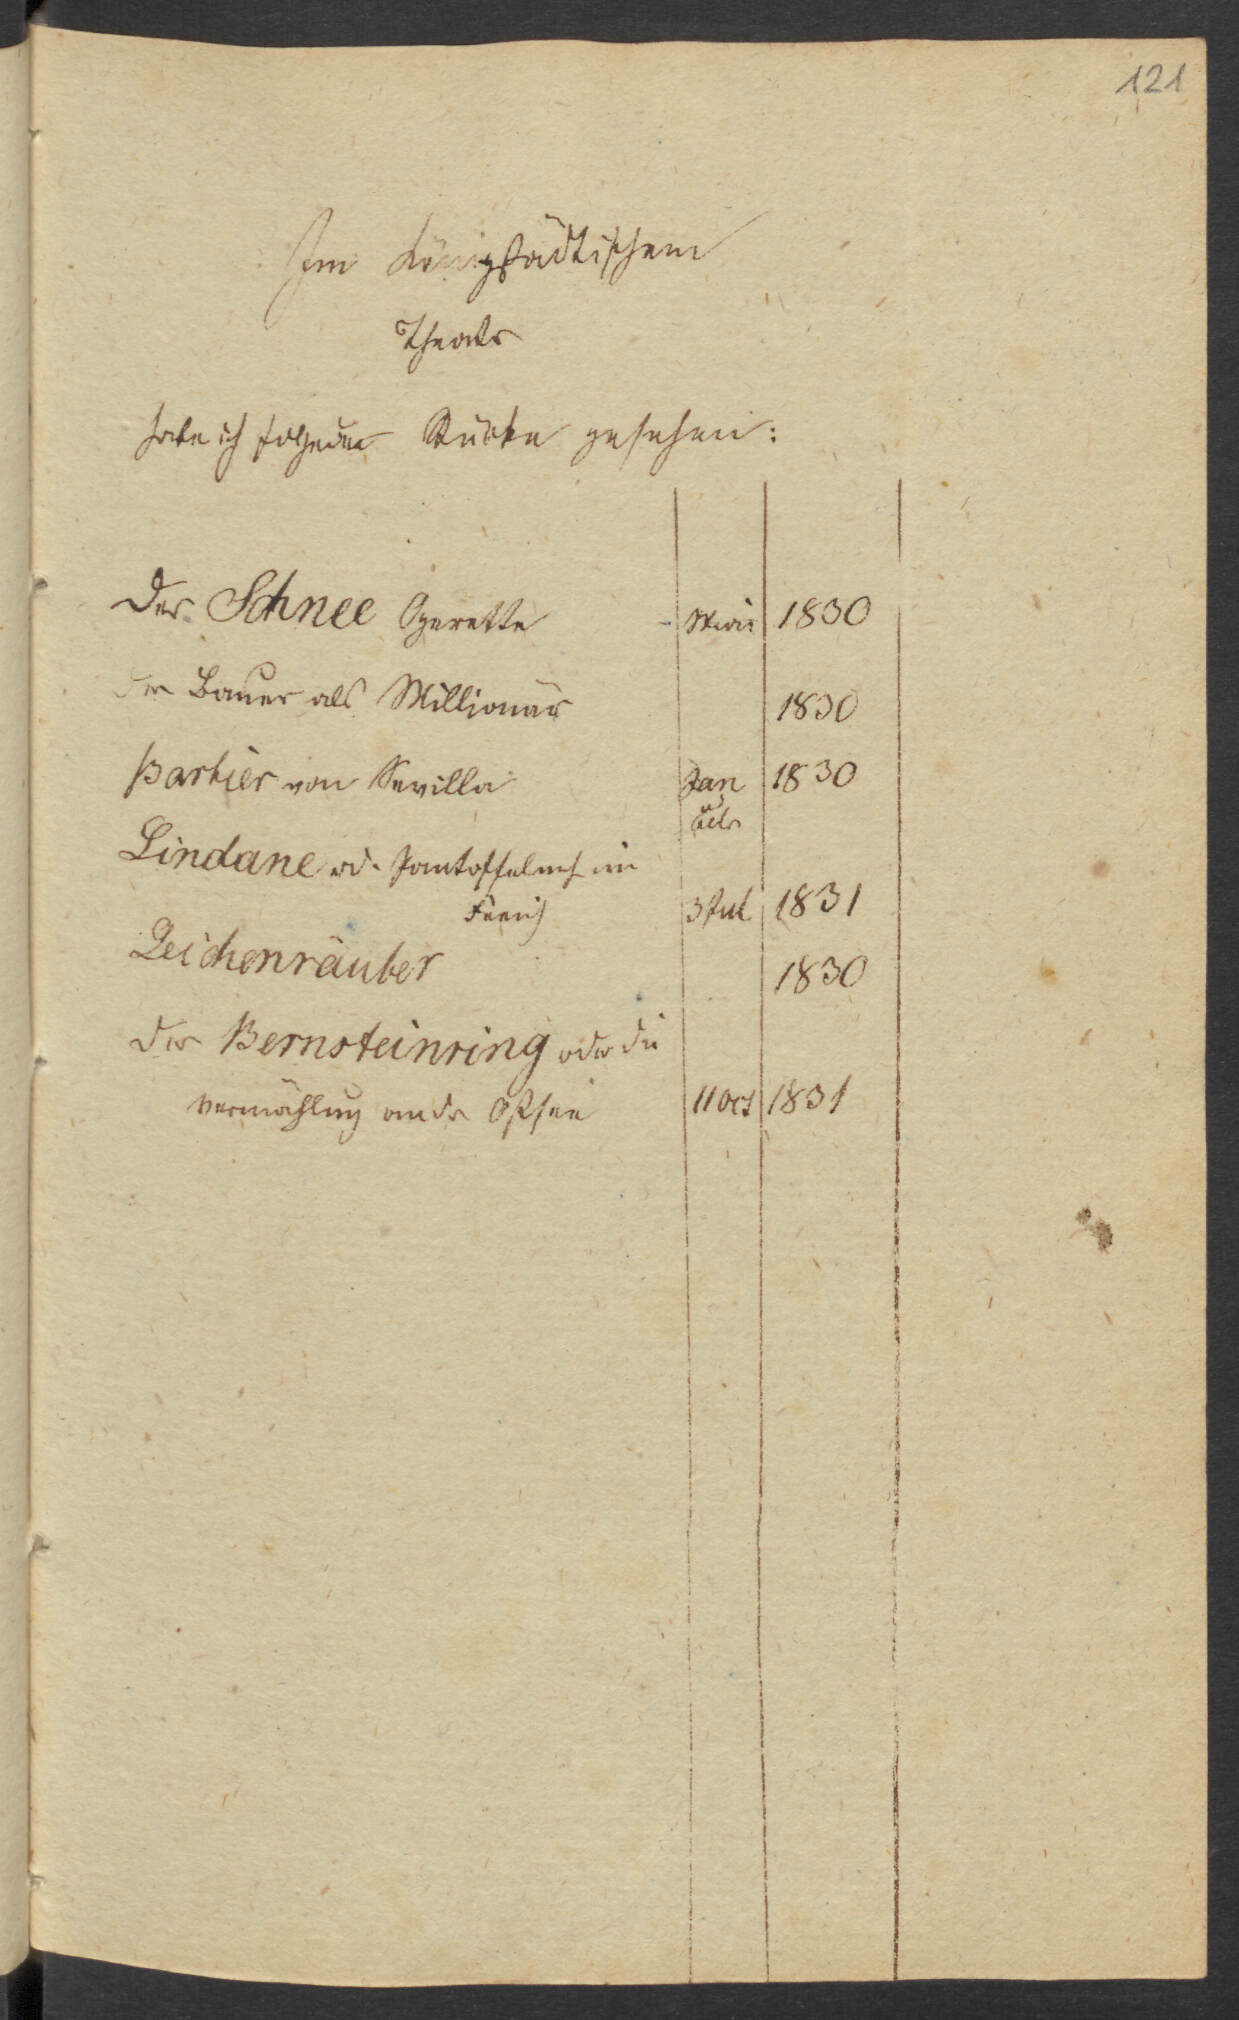 121
Im Königstädtischen
Theater
habe ich folgende Stücke gesehen:
Der Schnee Operette - 1830
Der Bauer als Millionär 1830
Barbier von Sevilla Jan 1830
Lindane od. Pantoffelm. im
3 Jul 1831
Leichenräuber 1830
der Bernsteinring oder die
Vermählung an der Ostsee 11 Oct 1831